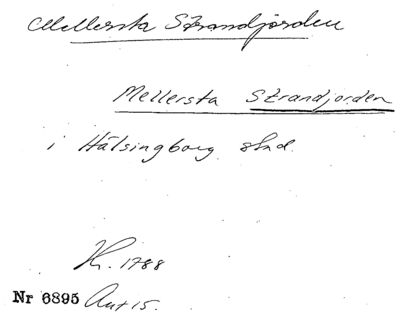 Mellersta Strandjorden
Mellersta Strandjorden
i Hälsingborg stad.
Kr. 1788
Nr 6895 Avt 15.